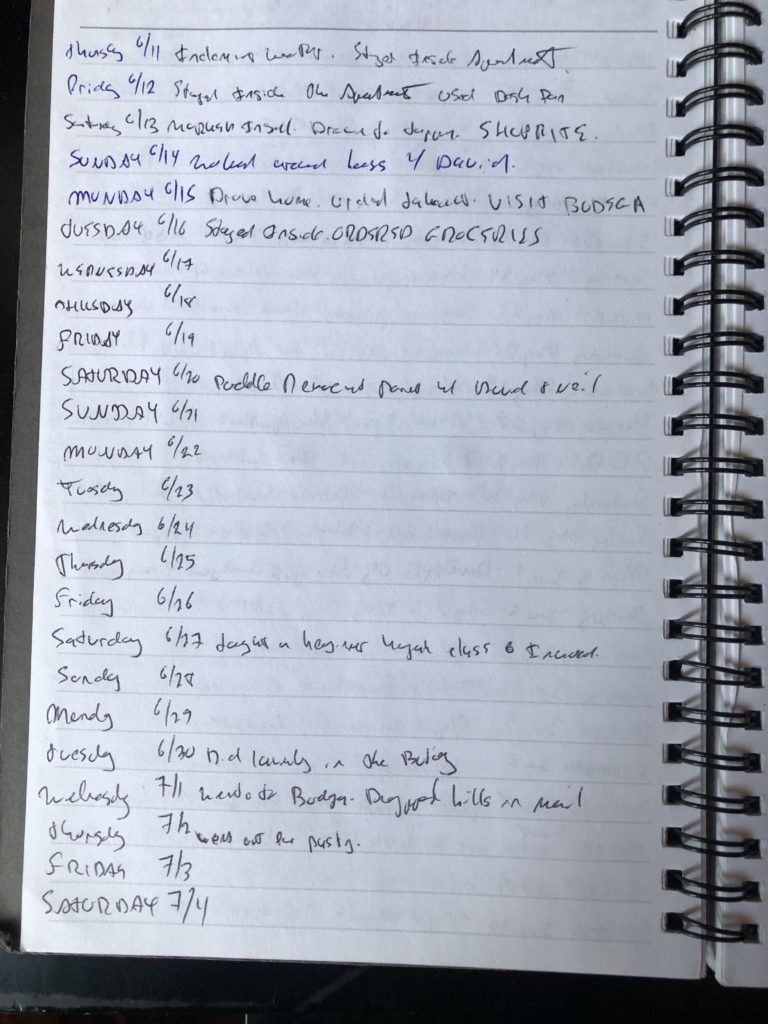 Thursdy 6/11 Inclemt weather. Stayed Inside Apartment.
Friday 6/12 Stayed Inside the Apartment used Dash Pan
Saturday 6/13 SHOPRITE.
SUNDAY 6/14 walked around w/ David.
MONDAY 6/15 Drove home. VISIT BODEGA
TUESDAY 6/16 Stayed Inside. ORDERED GROCERIES
WEDNESDAY 6/17
THUSDAY 6/18
FRIDAY 6/19
SATURDAY 6/20 Paddle w/
SUNDAY 6/21
MONDAY 6/22
Tuesdy 6/23
Wednesdy 6/24
Thursdy 6/25
Friday 6/26
Saturday 6/27 taught a beginner kayak class
Sunday 6/28
Mondy 6/29
Tuesdy 6/30 Did laundry in the
Wednesdy 7/1 Went to Bodega. Dropped bills in mail
Thursdy 7/2 went out for
FRIDAY 7/3
SATURDAY 7/4